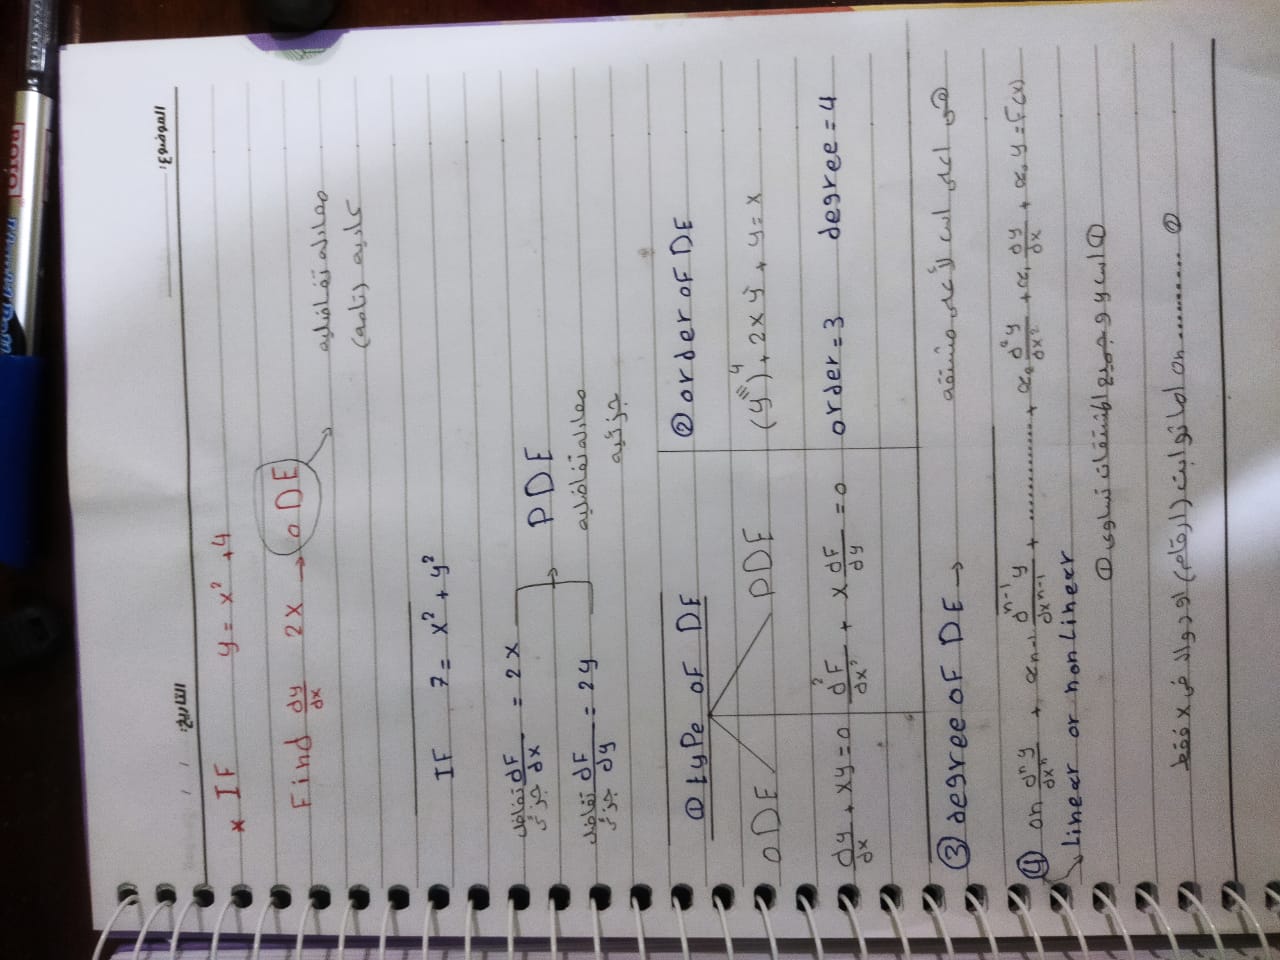 الموضوع:
التاريخ: / /
* IF y = x² + 4
Find dy/dx 2x → ODE
معادله تفاضليه
عاديه (تامه)
IF 7 = x² + y²
تفاضل جزئى dF/dx = 2x
PDE
معادله تفاضليه
جزئيه
تفاضل جزئى dF/dy = 2y
① type of DE
ODE PDE
dy/dx + xy = 0 d²F/dx² + x dF/dy = 0
② order of DE
(y''')⁴ + 2xy' + y = x
order = 3 degree = 4
③ degree of DE → هى اعلى اس لأعلى مشتقه
④ an dⁿy/dxⁿ + an-1 dⁿ⁻¹y/dxⁿ⁻¹ + ............. + a₂ d²y/dx² + a₁ dy/dx + a₀ y = F(x)
Linear or non Linear
① اس y و جميع المشتقات تساوى ①
② ........... an اما ثوابت (ارقام) او دوال فى x فقط